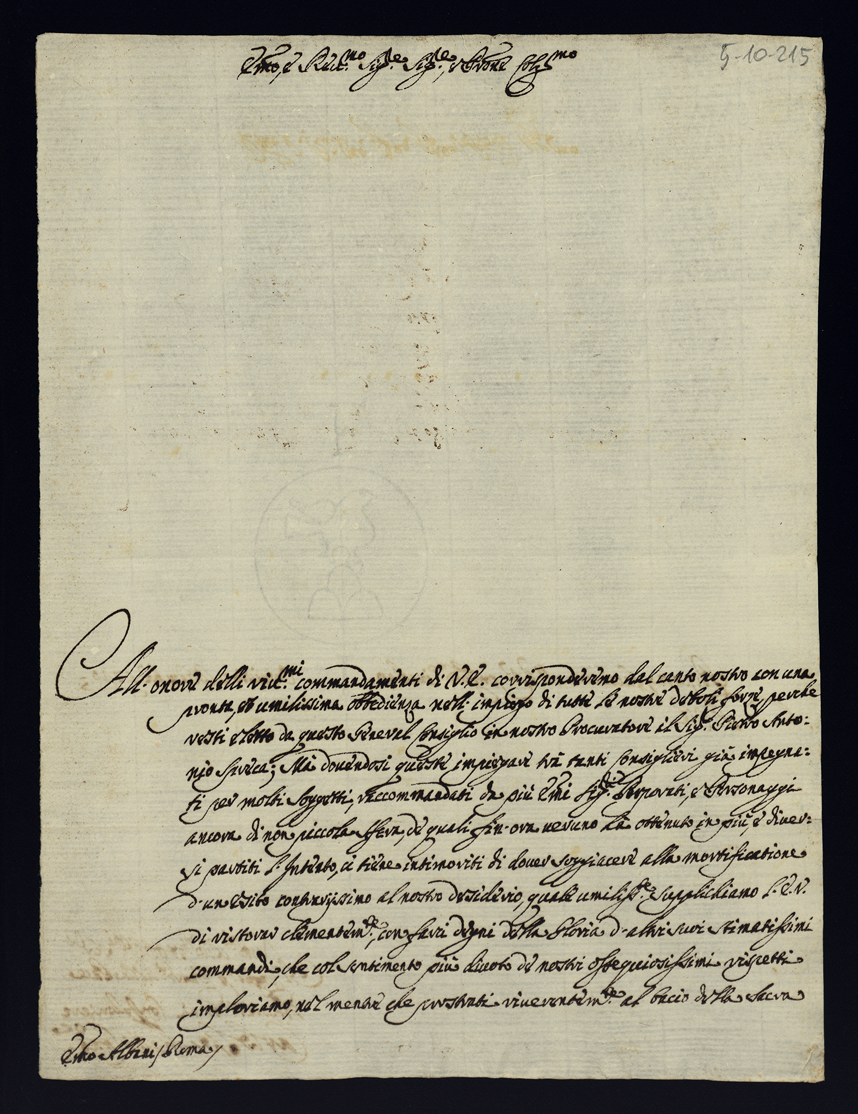 5-10-215
Emo, e Reu.mo Sig.re Sig.re, e Prone Col.mo
All'onore delli riu.mi commandamenti di V.E. corrisponderemo dal canto nostro con una
pronta, et umilissima obbedienza nell'impiego di tutte le nostre deboli forze, perche
resti eletto da questo General Consiglio in nostro Procuratore il Sig.r Pietro Anto:
nio Sivica; Mà dovendosi queste impiegare trà tanti Consiglieri già impegna:
ti per molti Soggetti, raccommandati da più Emi Sig.ri Porporati, e Personaggi
ancora di non piccola sfera, de quali fin'ora veruno hà ottenuto in più e diver:
si partiti l'Intento, ci tiene intimoriti di dover soggiacere alla mortificatione
d'un esito contrarissimo al nostro desiderio, quale umiliss.te Supplichiamo l'E.V.
di ristorar clementem.te, con farci degni della Gloria d'altri suoi stimatissimi
commandi, che col sentimento più divoto de nostri ossequiosissimi rispetti
imploriamo, nel mentre che prostrati riverentem.te al bacio della Sacra
Emo Albani / Roma /